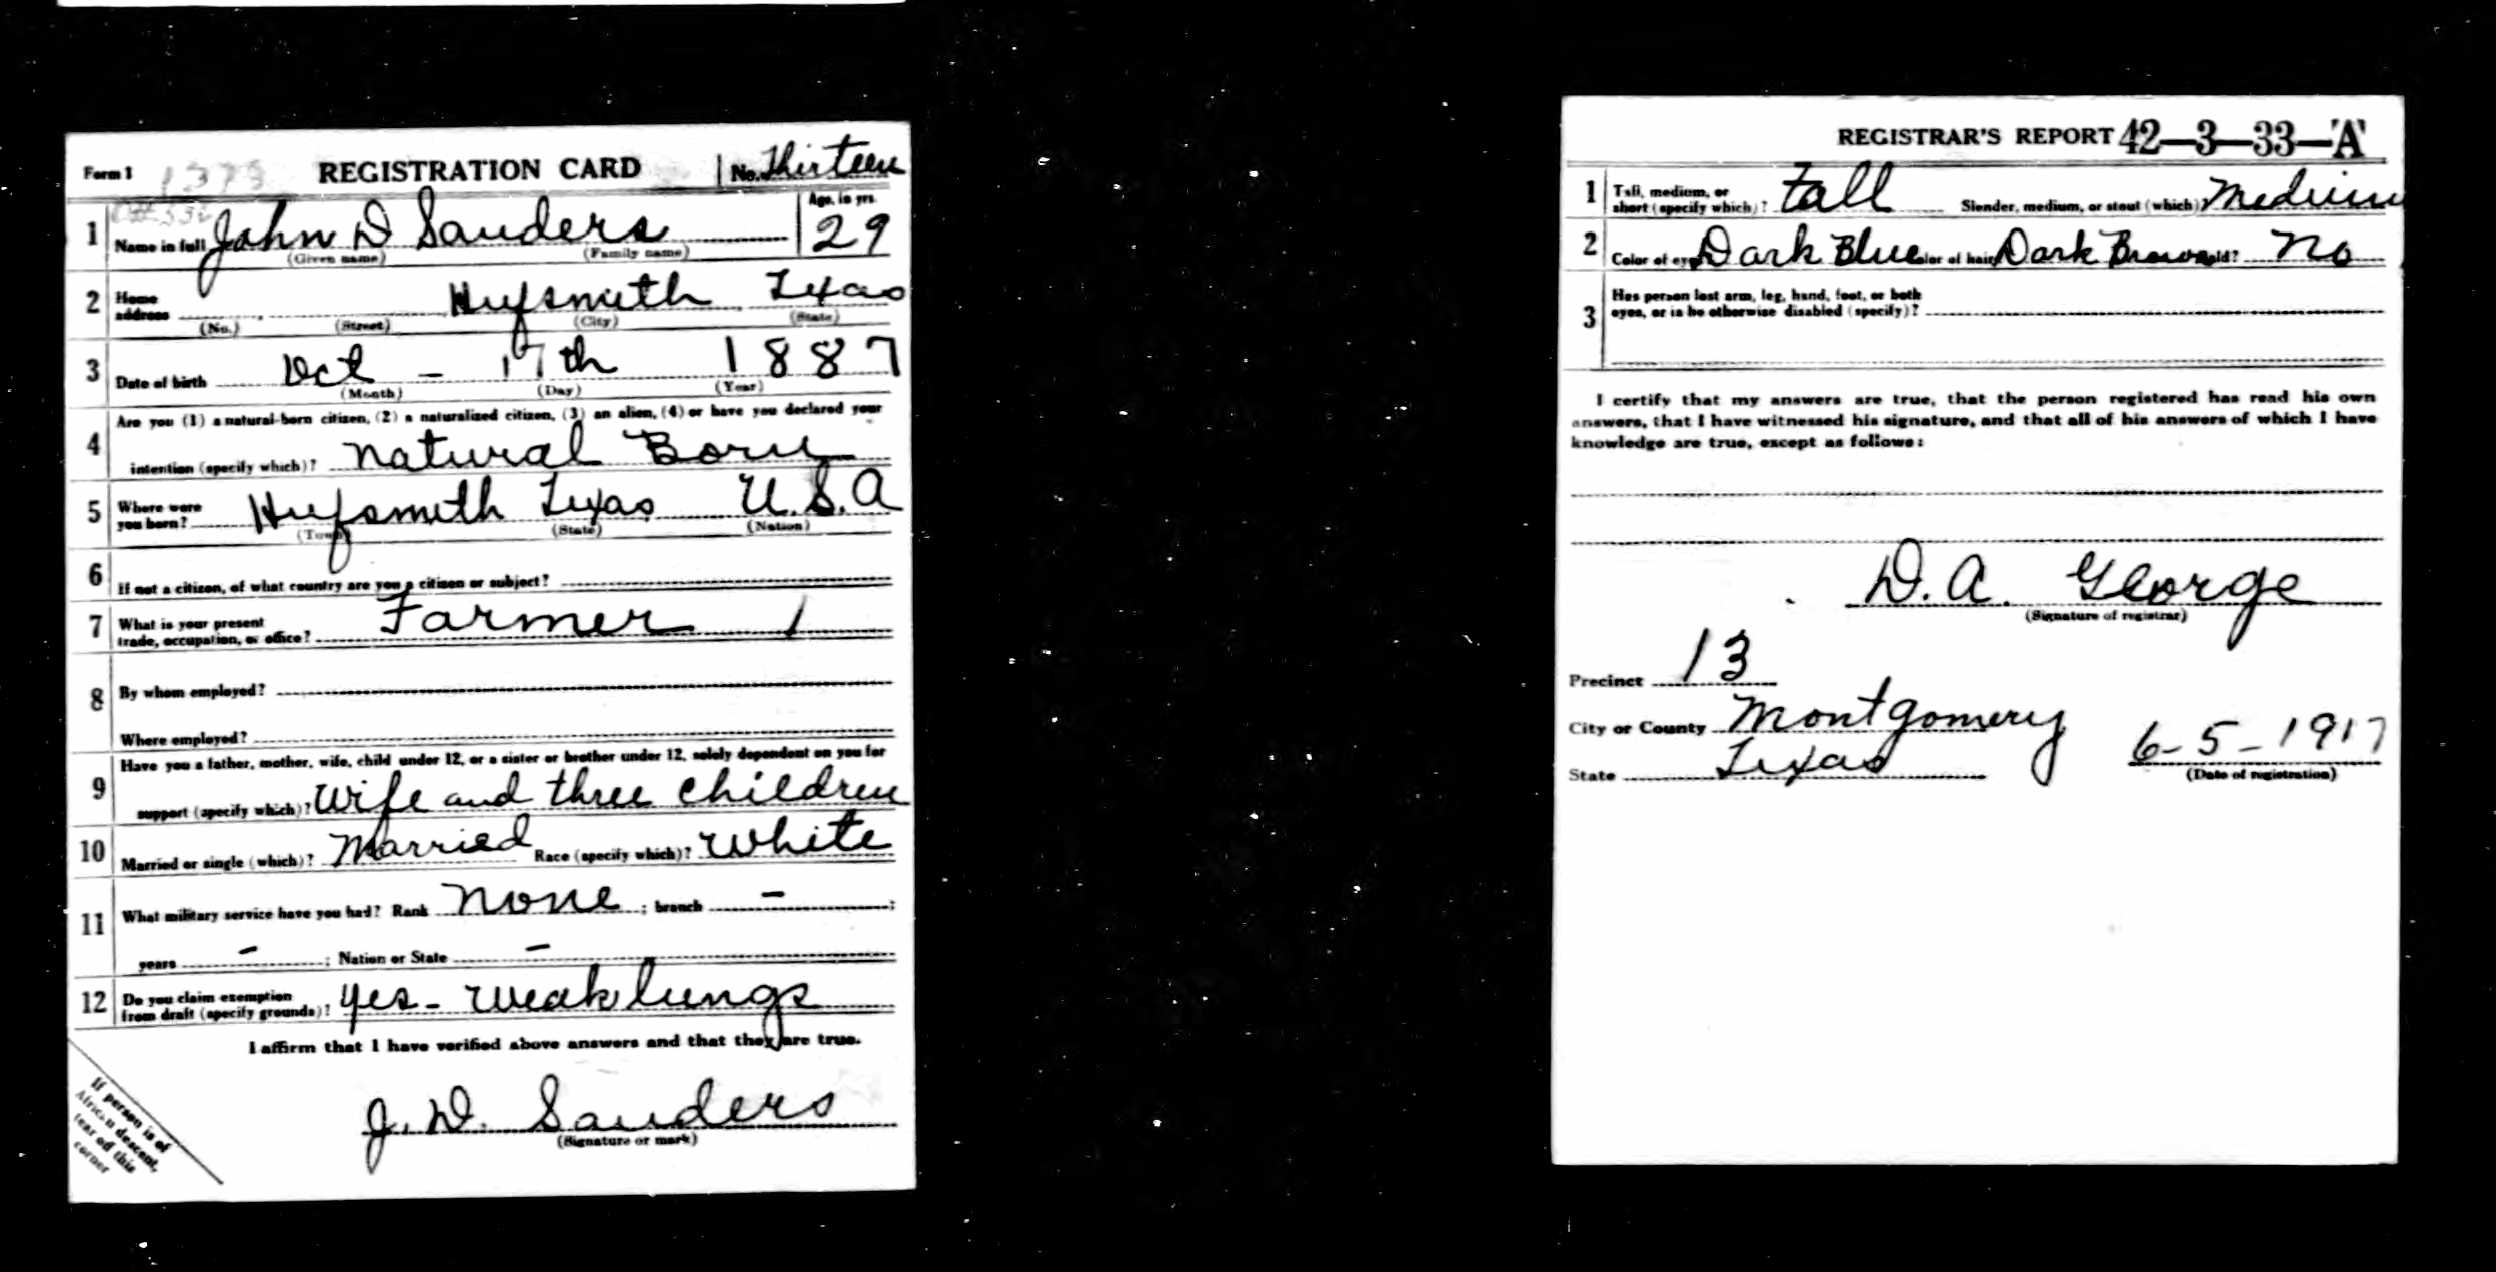 Form 1 REGISTRATION CARD No. Thirteen
1 Name in full John D Sauders Age, in yrs. 29
(Given name) (Family name)
2 Home address Hufsmith Texas
(No.) (Street) (City) (State)
3 Date of birth Oct - 17th 1887
(Month) (Day) (Year)
4 Are you (1) a natural-born citizen, (2) a naturalized citizen, (3) an alien, (4) or have you declared your
intention (specify which)? Natural Born
5 Where were you born? Hufsmith Texas U.S.A
(Town) (State) (Nation)
6 If not a citizen, of what country are you a citizen or subject?
7 What is your present
trade, occupation, or office? Farmer 1
8 By whom employed?
Where employed?
9 Have you a father, mother, wife, child under 12, or a sister or brother under 12, solely dependent on you for
support (specify which)? Wife and three children
10 Married or single (which)? Married Race (specify which)? White
11 What military service have you had? Rank None ; branch - ;
years - ; Nation or State -
12 Do you claim exemption
from draft (specify grounds)? Yes - Weak lungs
I affirm that I have verified above answers and that they are true.
J. D. Sauders
(Signature or mark)
If person is of
African descent,
tear off this
corner
REGISTRAR'S REPORT 42-3-33-A
1 Tall, medium, or
short (specify which)? Tall Slender, medium, or stout (which)? Medium
2 Color of eyes Dark Blue Color of hair Dark Brown Bald? No
3 Has person lost arm, leg, hand, foot, or both
eyes, or is he otherwise disabled (specify)?
I certify that my answers are true, that the person registered has read his own
answers, that I have witnessed his signature, and that all of his answers of which I have
knowledge are true, except as follows:
D. A. George
(Signature of registrar)
Precinct 13
City or County Montgomery
State Texas 6-5-1917
(Date of registration)